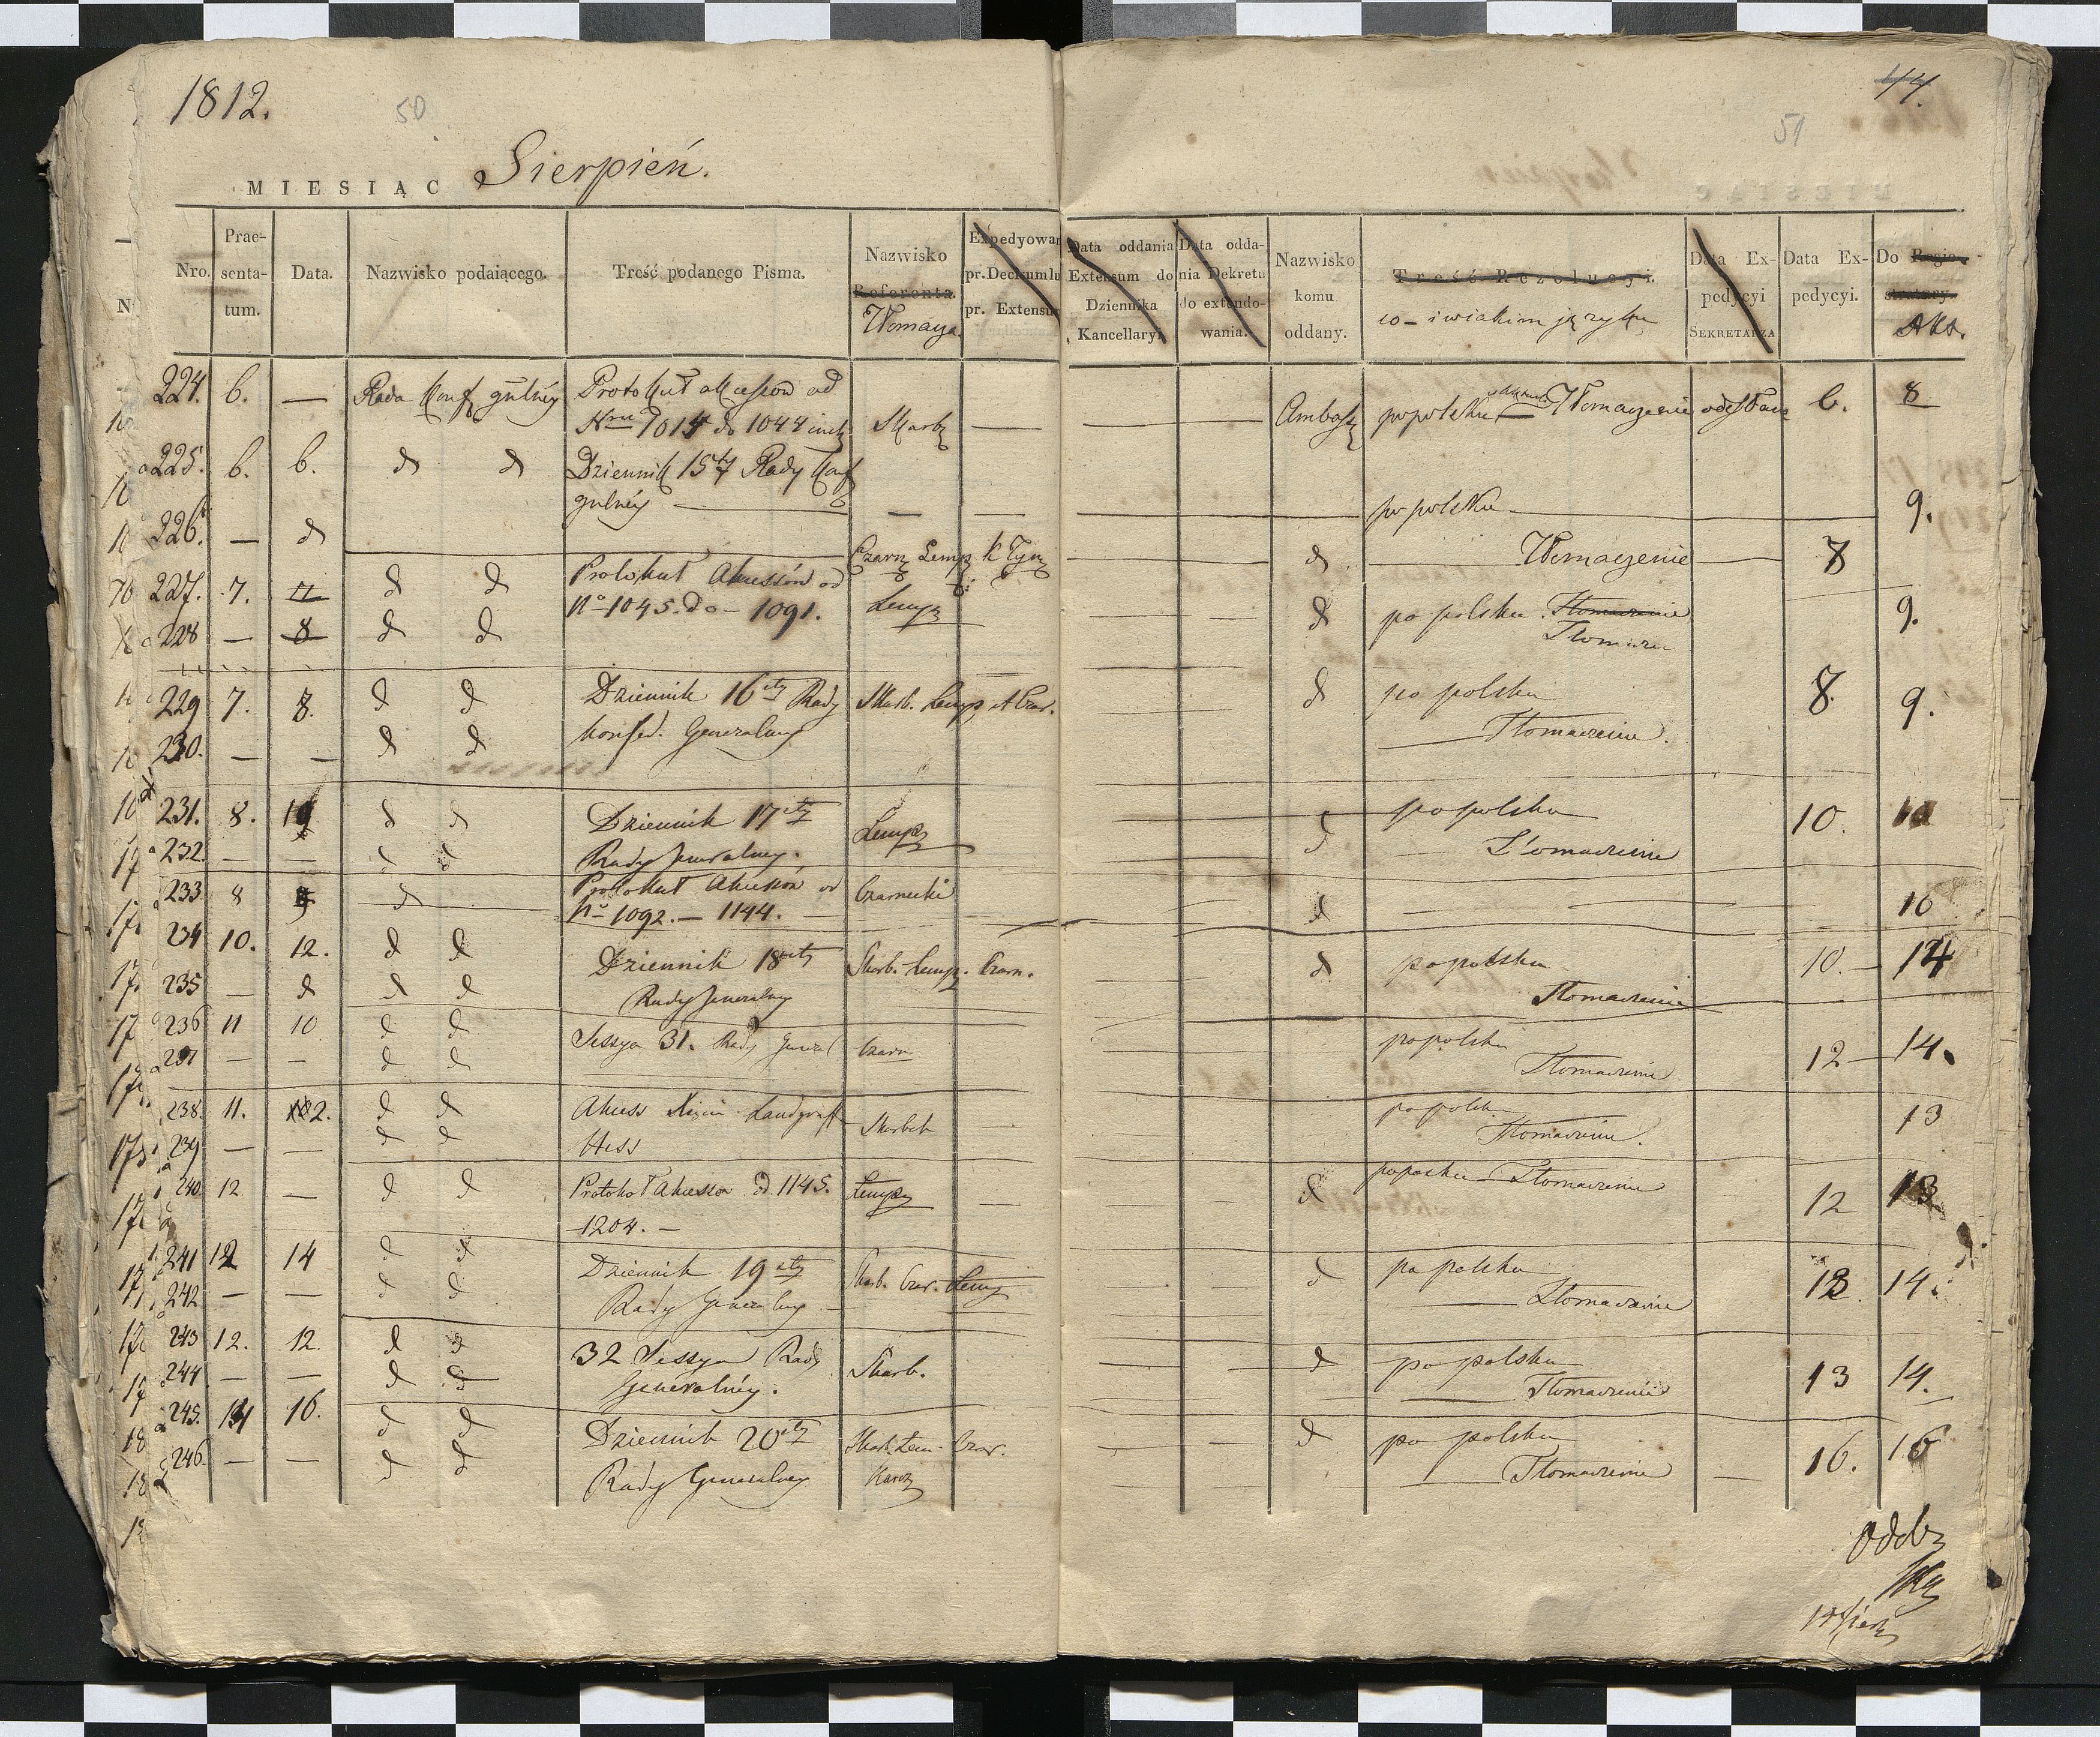 1812.
50
44.
51
MIESIĄC Sierpień.
Nro.
Prae-
senta-
tum.
Data.
Nazwisko podaiącego.
Treść podanego Pisma.
Nazwisko
Referenta.
Tłomacza
Expedyowan
pr. Decisum lu
pr. Extensu
Data oddania
Extensum do
Dziennika
Kancellaryi
Data odda-
nia Dekretu
do extendo-
wania.
Nazwisko
komu
oddany.
Treść Rezolucyi.
co - i w iakim języku
Data Ex-
pedycyi
SEKRETARZA
Data Ex-
pedycyi.
Do Regie-
stratury.
Akt.
224. 6. — Rada Konf gnlnéy Protokuł akcessów od
1014 do 1044 incl. Skarb — Ambasz po polsku — Tłomaczenie odesłane 6. 8
225. 6. 6. d d Dziennik 15ty Rady Konf
gnlnéy — — — po polsku 9.
226. — d Czarn Lemp d Tłomaczenie — 8
227. 7. 7 d d Protokuł Akcessów od
No 1045. do — 1091. Lemp d po polsku. Tłomaczenie 9.
228 — 8 d d
229 7. 8. d d Dziennik 16ty Rady Skarb. Lemp. et Czar. d po polsku 8. 9.
230. — — d d konfed. Generalney Tłomaczenie.
231. 8. d d Dziennik 17ty Lemp d po polsku 10. 10
232. — — d d Rady Generalney. Tłomaczenie
233 8 d Protokuł Akcessów od Czarnecki
No 1092. — 1144. — d — 10
234 10. 12. d d Dziennik 18ty Skarb. Lemp. Czarn. d po polsku 10. — 14
235 — d d d Rady Generalney Tłomaczenie
236 11 10 d d Sessya 31. Rady General Czarn po polsku 12 — 14.
237 — — d d Tłomaczenie
238. 11. 12. d d Akcess Xięcia Landgraff Skarbek po polsk 13
239 — — d d Hess Tłomaczenie.
240. 12 — d d Protokoł Akcessów od 1145. Lemp d po polsku — Tłomaczenie 12 13
1204. —
241 12 14 d d Dziennik 19ty Skarb. Czar. Lemp d po polsku 13. 14.
242 — — d d Rady Generalney — Tłomaczenie
243 12. 12. d d 32 Sessya Rady Skarb. d po polsku 13 14.
244 — — d d Generalnéy. Tłomaczenie
245. 14 16. d d Dziennik 20ty Skarb. Lem. Czar. d po polsku 16. 16
246. — — d d Rady Generalney Tłomaczenie